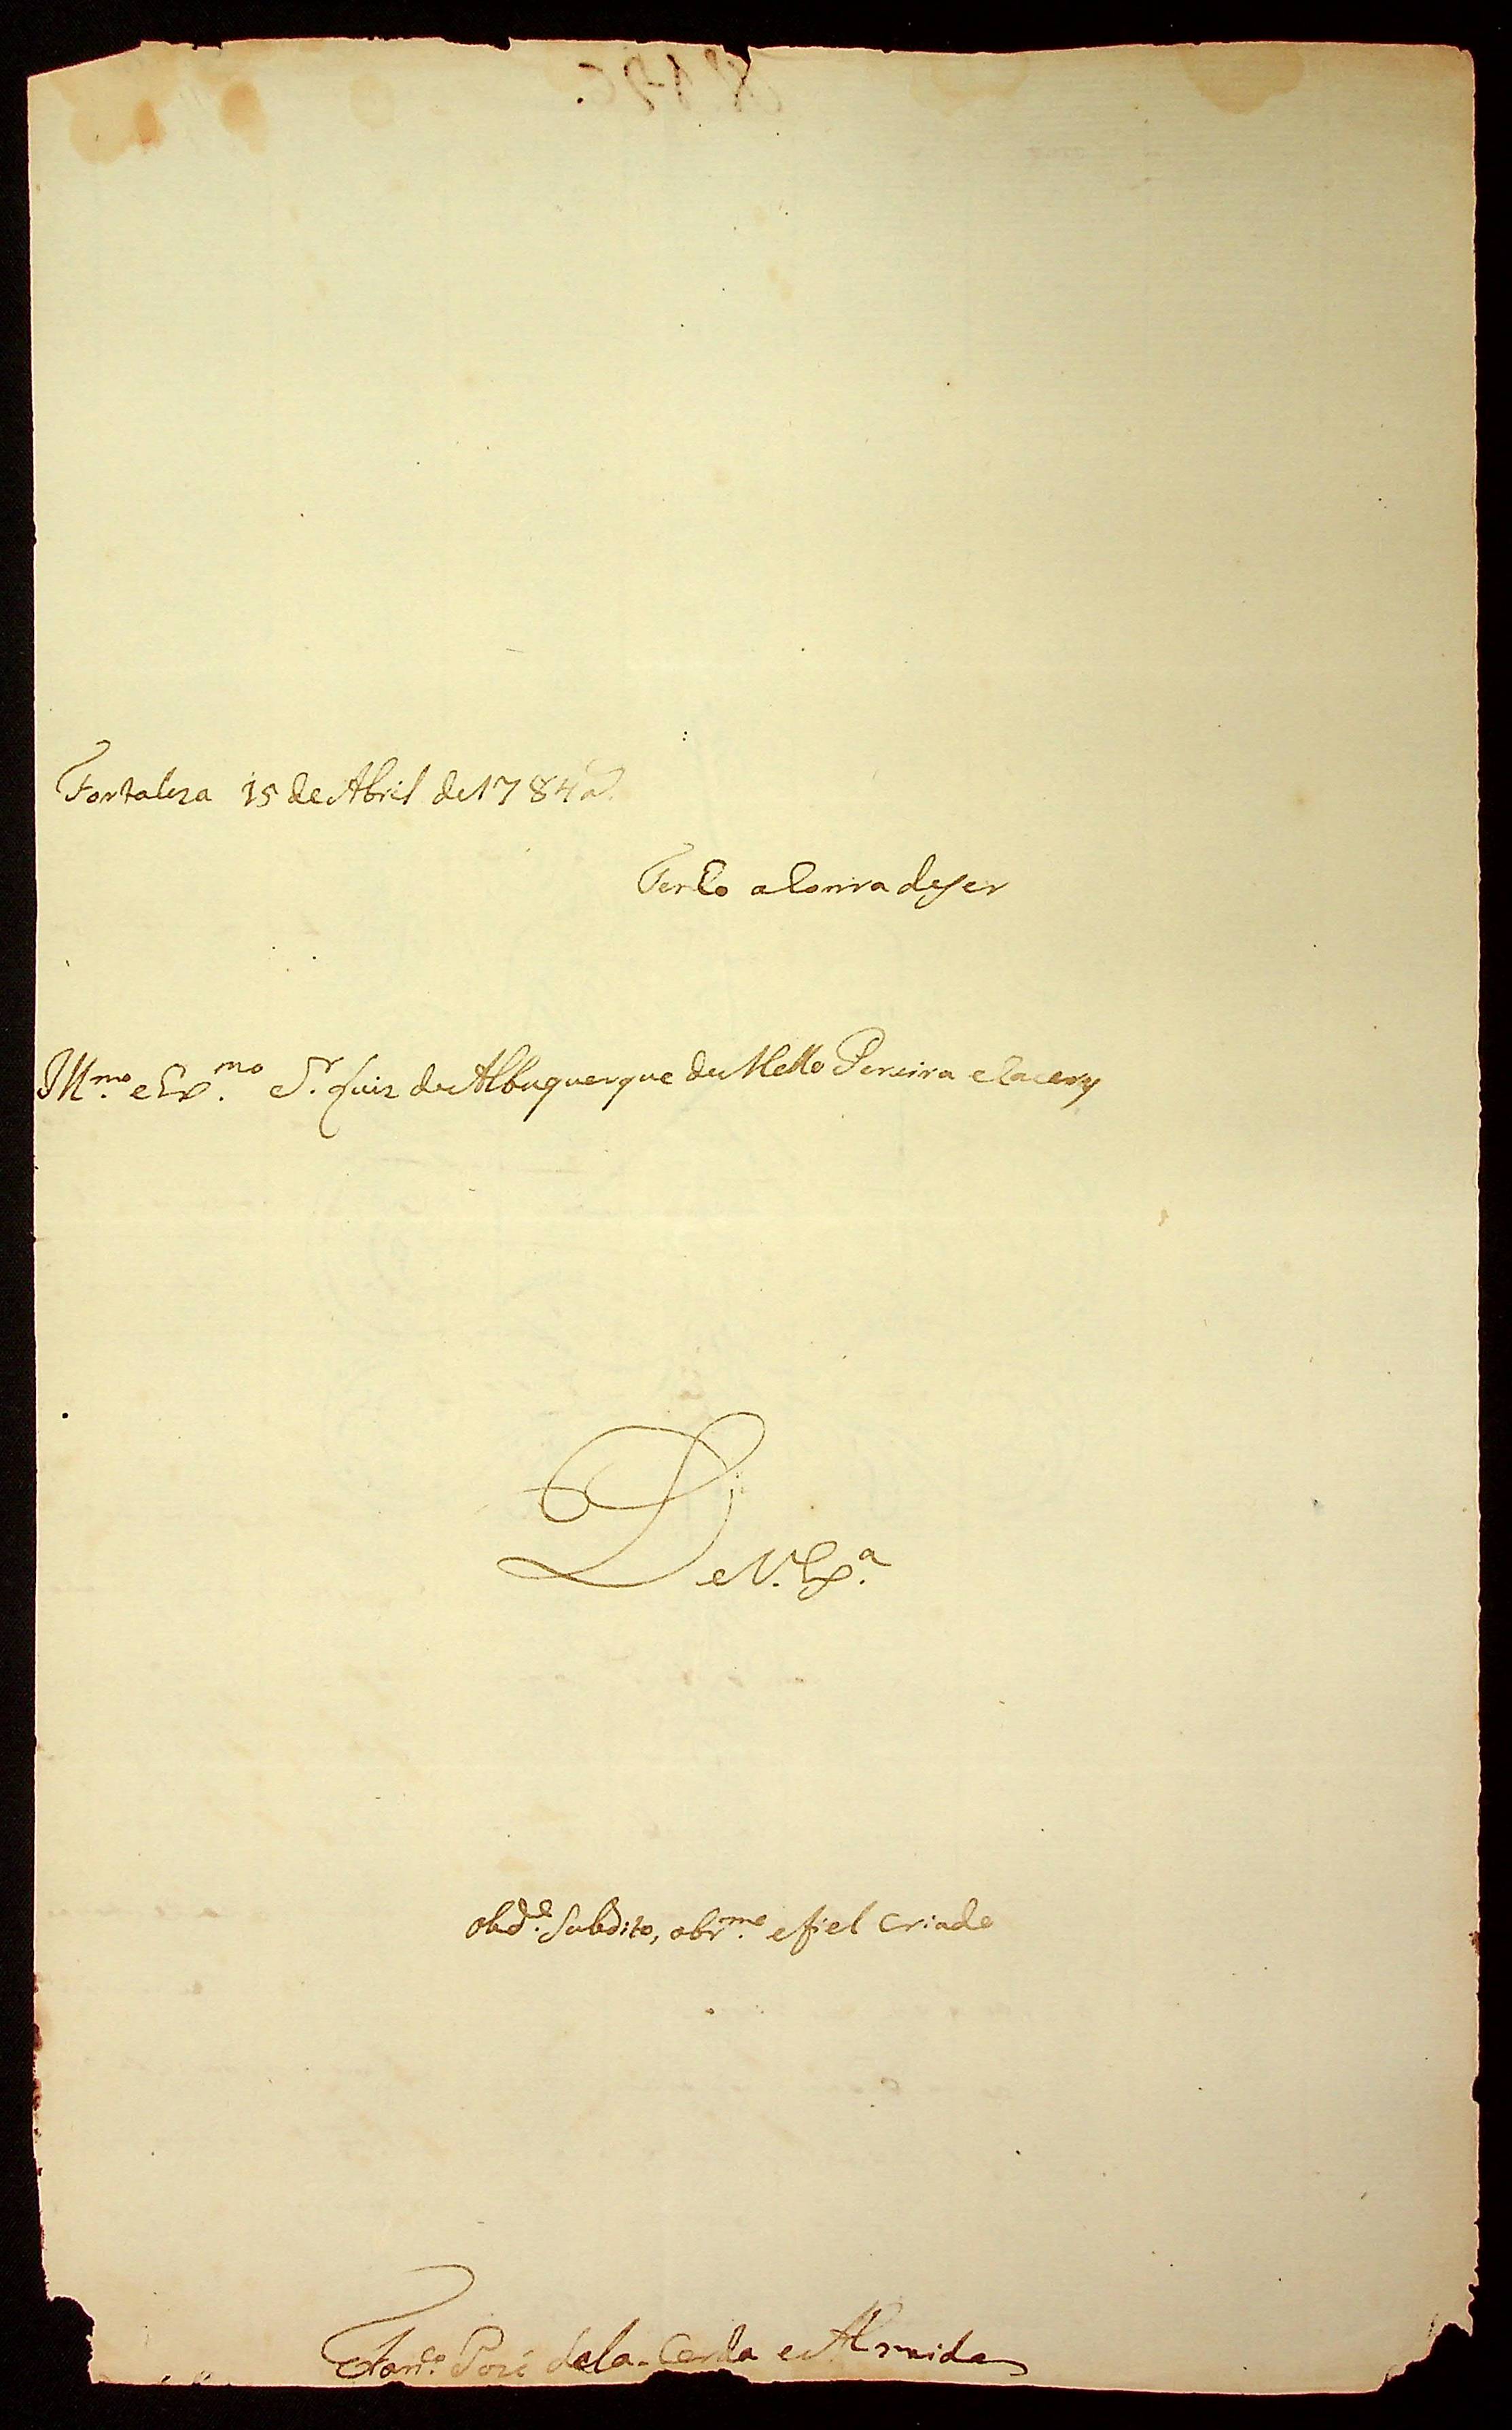 Fortaleza 15 de Abril de 1784 a.
Tenho a honra de ser
Illmo. e Exmo. Sr. Luiz de Albuquerque de Mello Pereira e Caceres
De V. Exa.
obde. Subdito, obrmo. e fiel criado
Franco. José de la-Cerda e Almeida